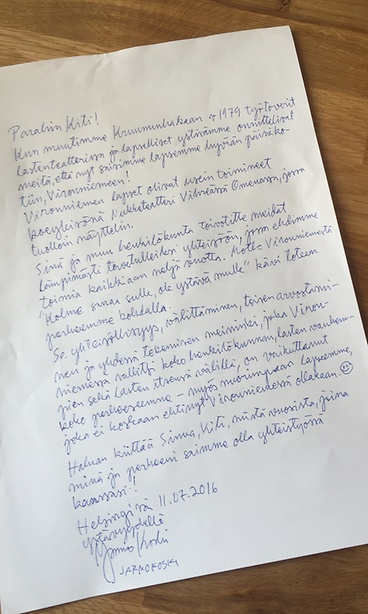 Parahin Kiti!
Kun muutimme Kruununhakaan v 1979 työtoverit
lastenteatterissa ja lapselliset ystävämme onnittelivat
meitä, että nyt saisimme lapsemme hyvään päiväko-
tiin, Vironniemeen!
Vironniemen lapset olivat usein toimineet
koeyleisönä Nukketeatteri Vihreässä Omenassa, jossa
tuolloin näyttelin.
Sinä ja muu henkilökunta toivotitte meidät
lämpimästi tervetulleiksi yhteisöön, jossa ehdimme
toimia kaikkiaan neljä vuotta. Motto Vironniemestä
"Kolme sanaa sulle, ole ystävä mulle" kävi toteen
perheemme kohdalla.
Se yhteisöllisyys, välittäminen, toisen arvostami-
nen ja yhdessä tekemisen meininki, joka Viron-
niemessä vallitsi koko henkilökunnan, lasten vanhem-
pien sekä lasten itsensä välillä, on vaikuttanut
koko perheeseemme – myös nuorimpaan lapseemme,
joka ei koskaan ehtinyt Vironniemessä ollakaan. ☺
Haluan kiittää Sinua, Kiti, niistä vuosista, joina
minä ja perheeni saimme olla yhteistyössä
kanssasi!
Helsingissä 11.07.2016
ystävyydellä
Jarmo Koski
JARMO KOSKI